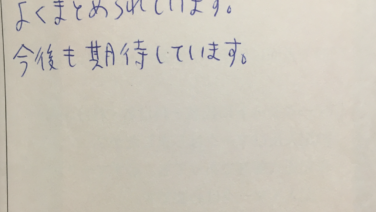 よくまとめられています。
今後も期待しています。